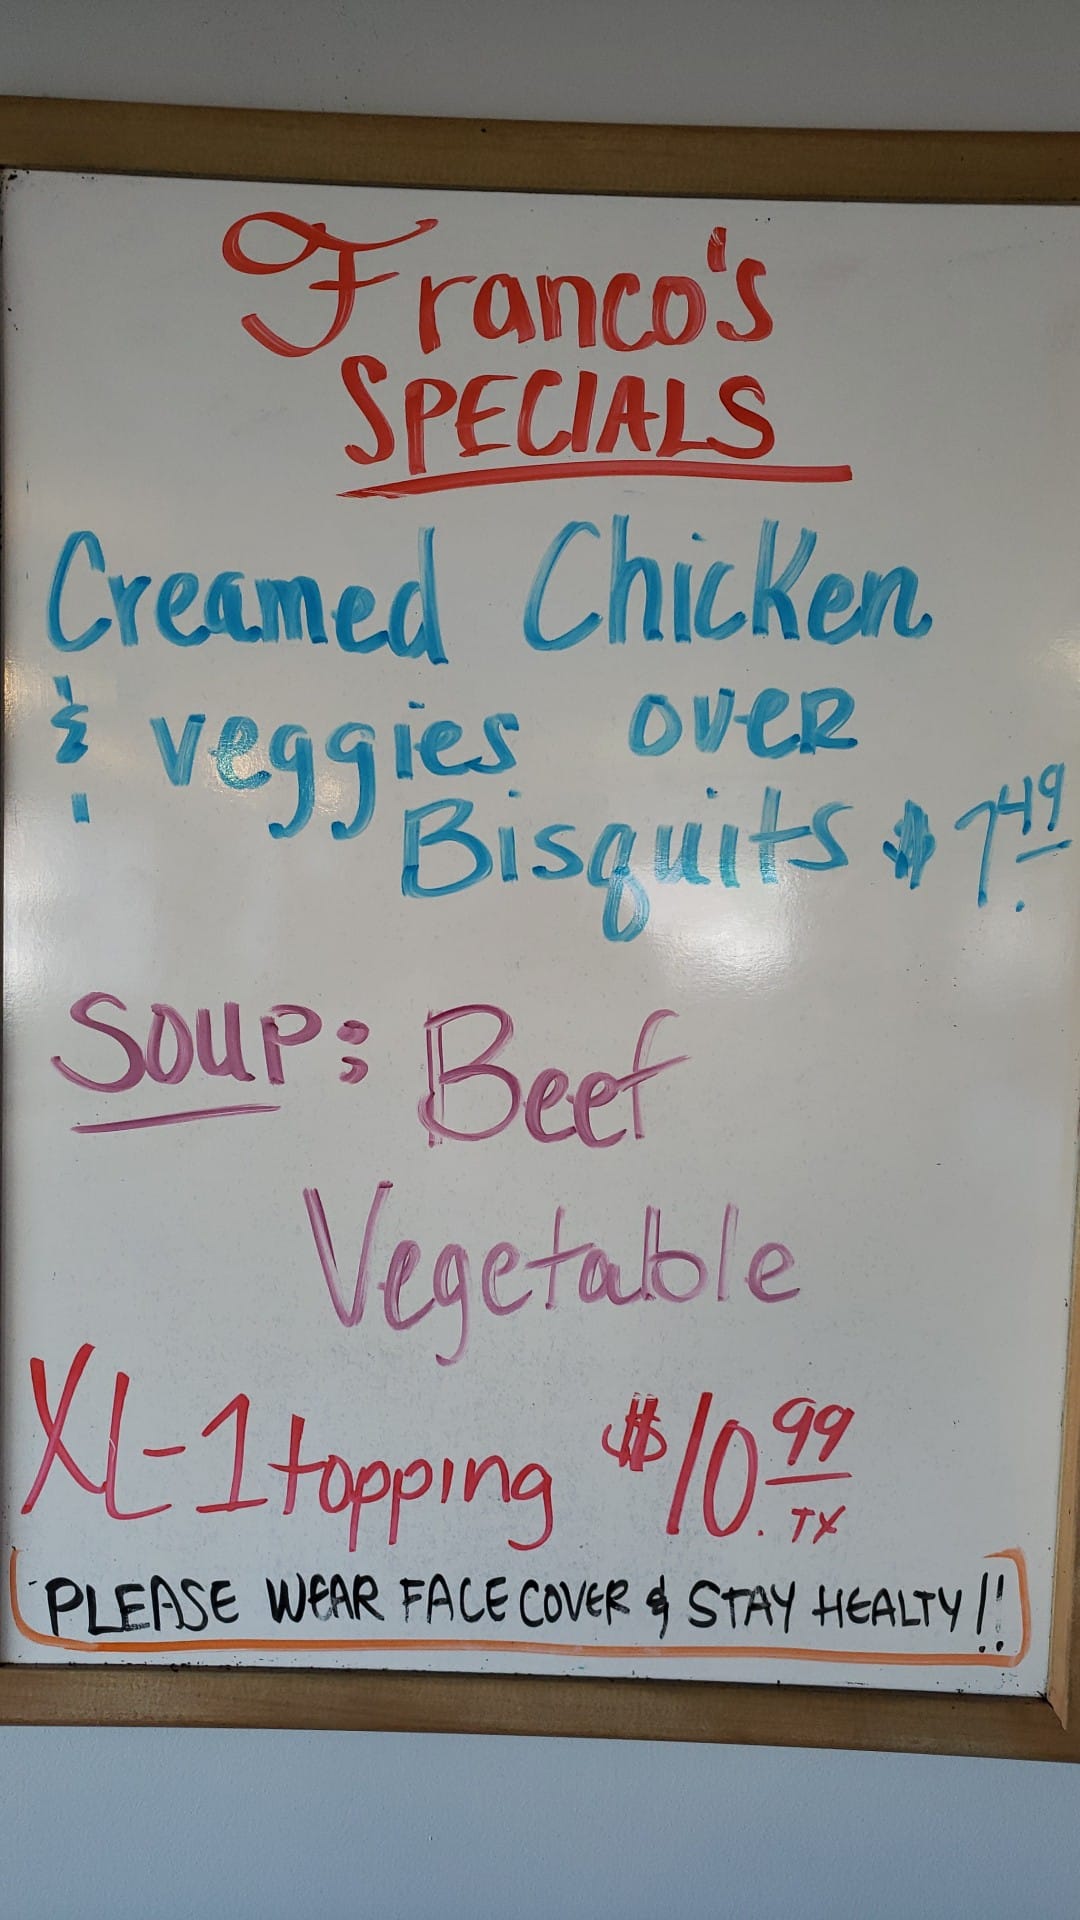 Franco's
SPECIALS
Creamed Chicken
& veggies over
Bisquits $7.49
SOUP: Beef
Vegetable
XL-1 topping $10.99
TX
PLEASE WEAR FACE COVER & STAY HEALTY!!